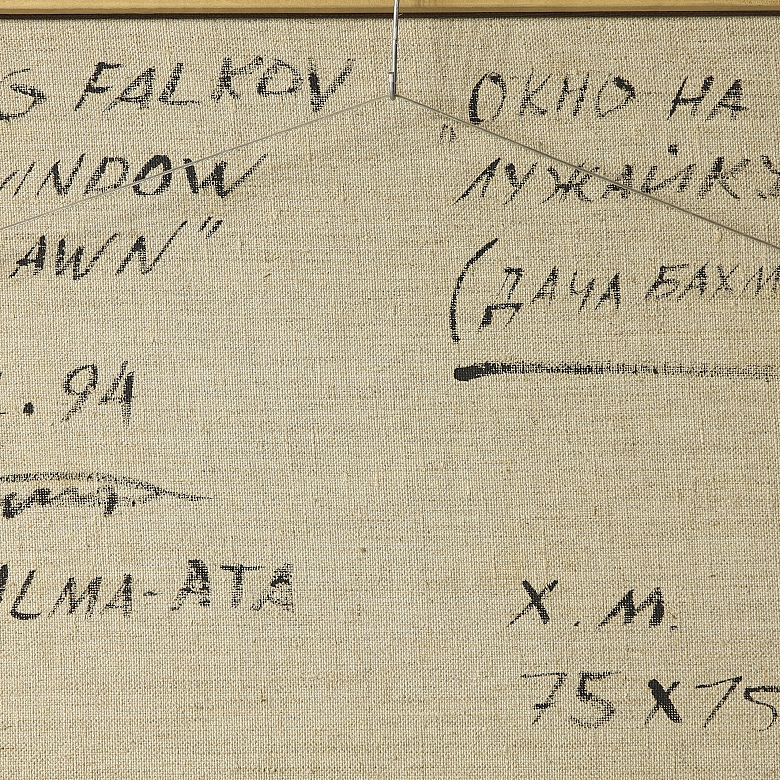 G FALKOV
WINDOW
AWN"
. 94
ALMA-ATA
"ОКНО НА
ЛУЖАЙКУ
(ДАЧА БАХМ
Х.М.
75X75